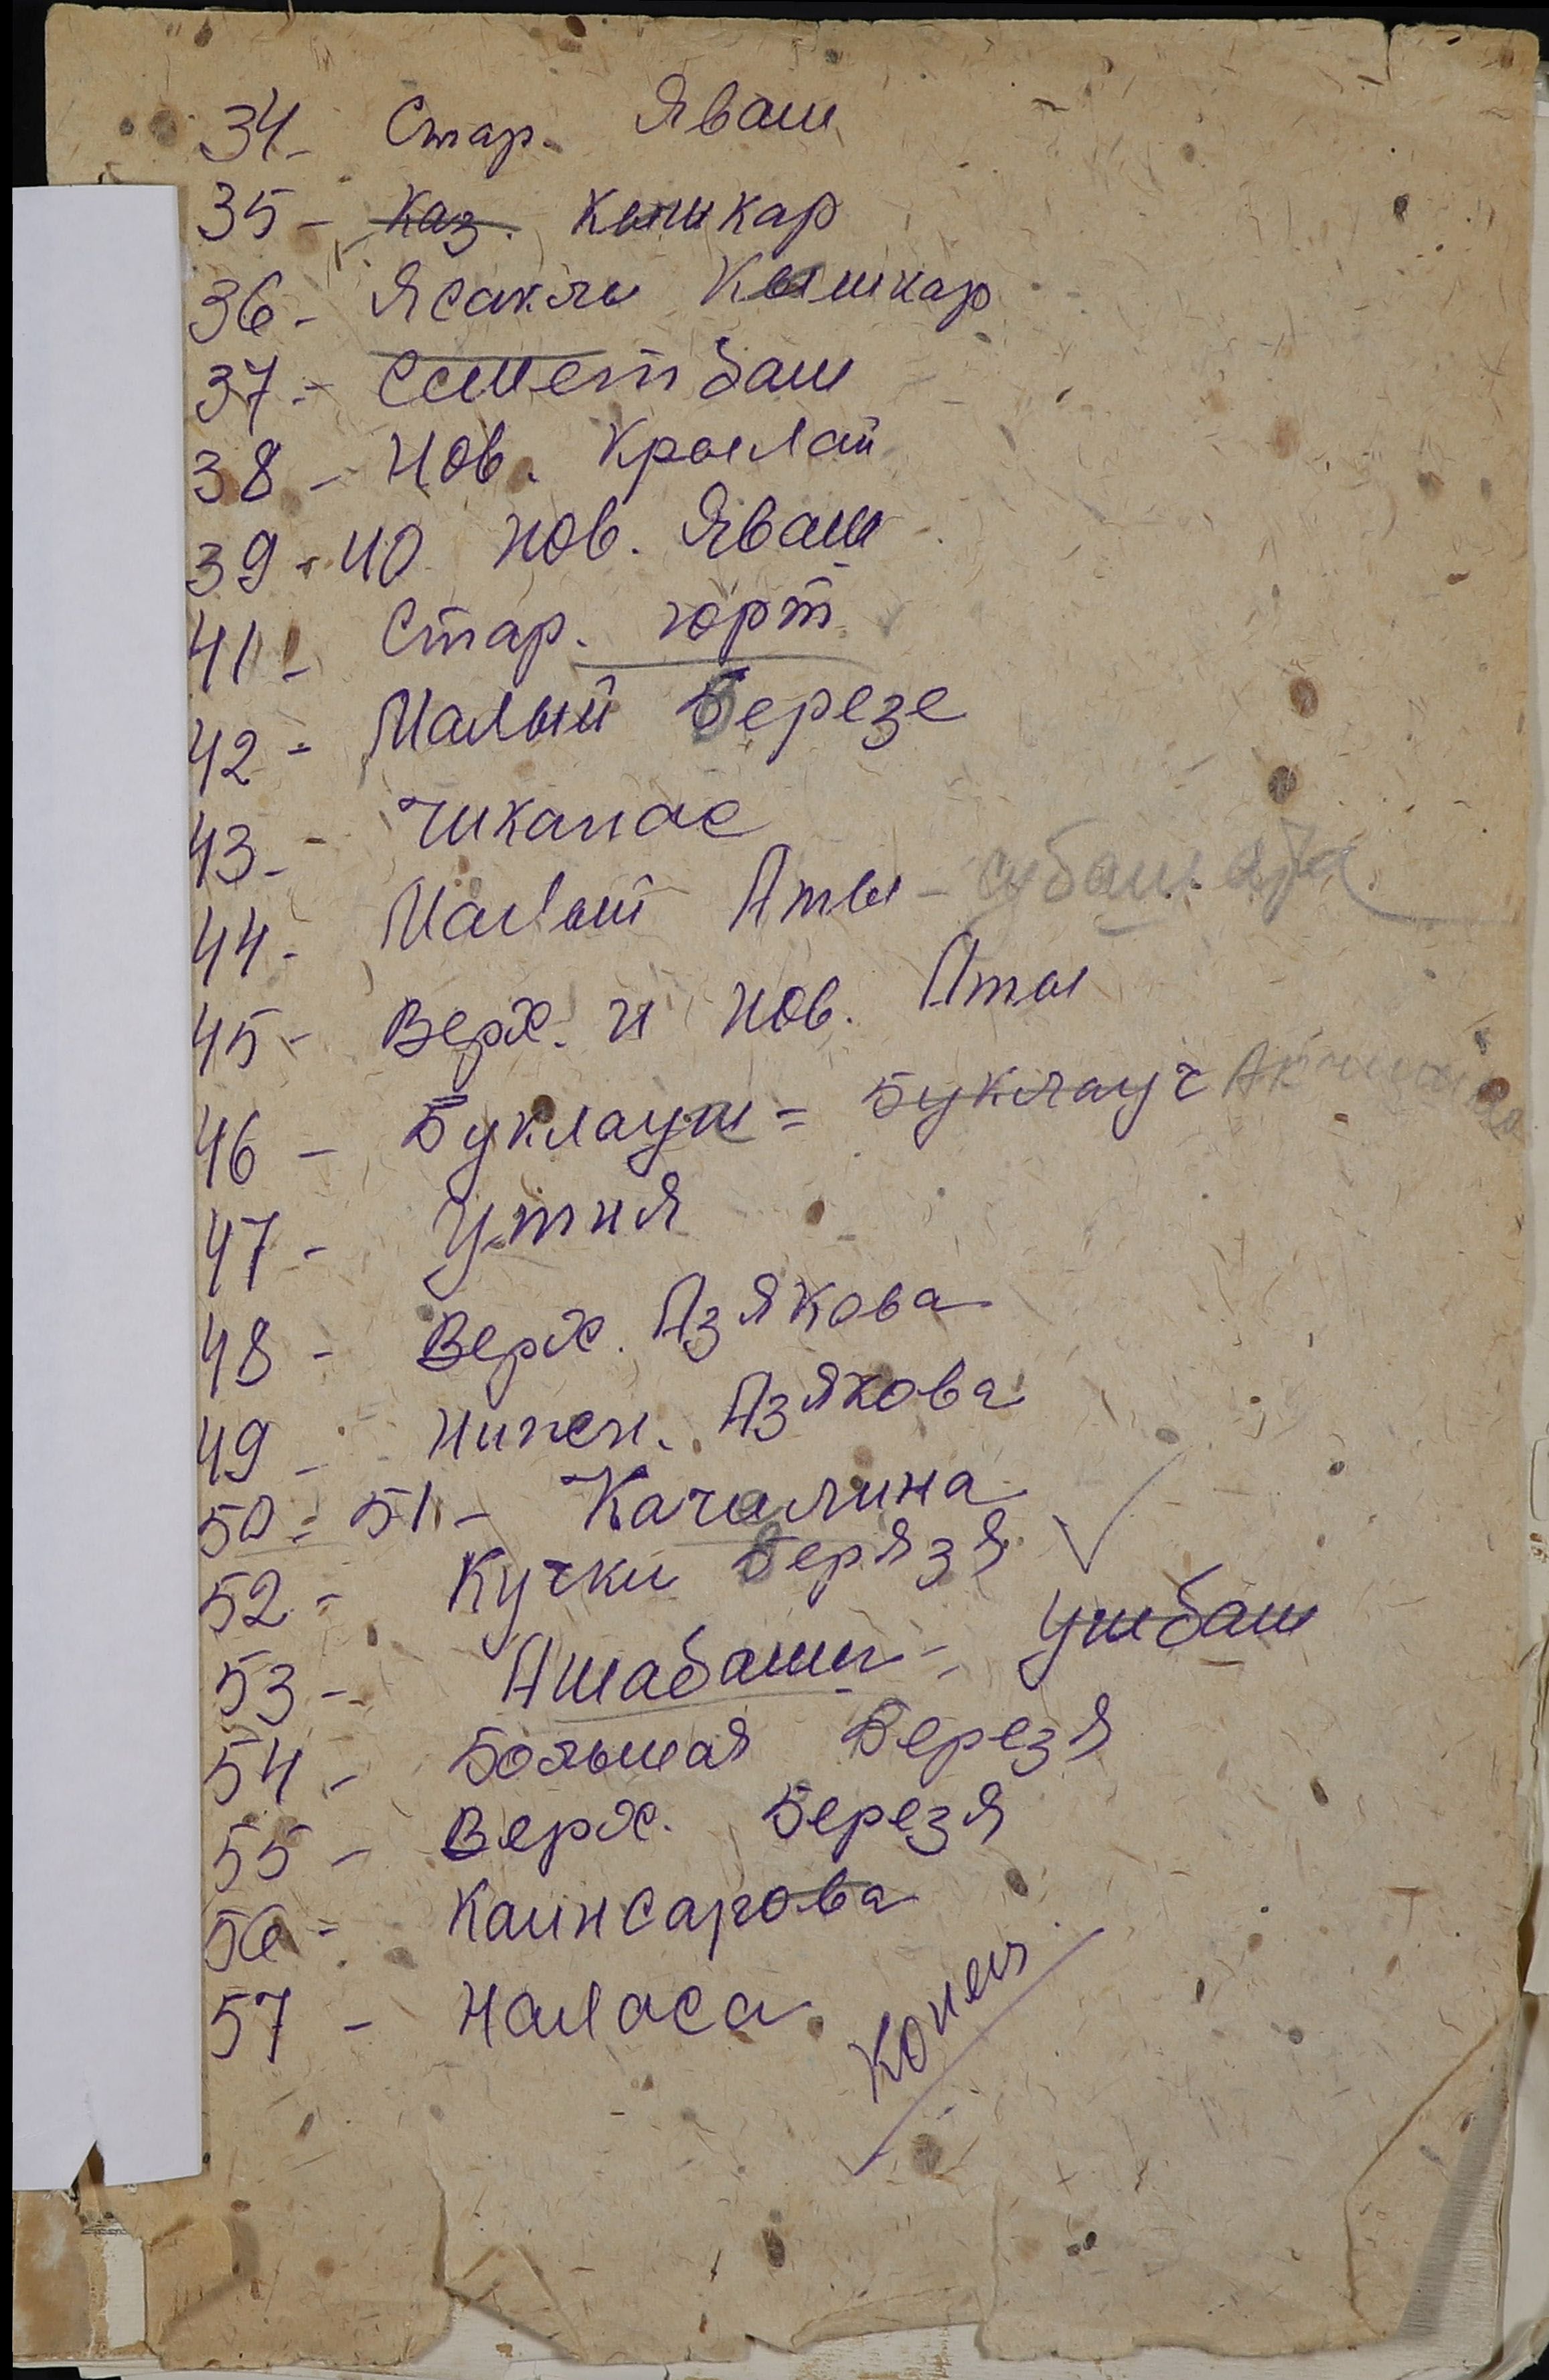 34- Стар. Яваш
35- Каз. Кышкар
36- Ясаклы Кышкар
37- Семетбаш
38- Нов. Крылай
39-40 Нов. Яваш
41- Стар. юрт
42- Малый Березе
43- Чиканас
44- Малый Аты - Субаш. Ата
45- Верх. и Нов. Аты
46- Буклауш = Буклауч
47- Утня
48- Верх. Азякова
49- Нижн. Азякова
50-51- Качалина
52- Кучки Берязя
53- Ашабаши - Ушбаш
54- Большая Березя
55- Верх. Березя
56- Каинсарова
57- Наласа
Конец